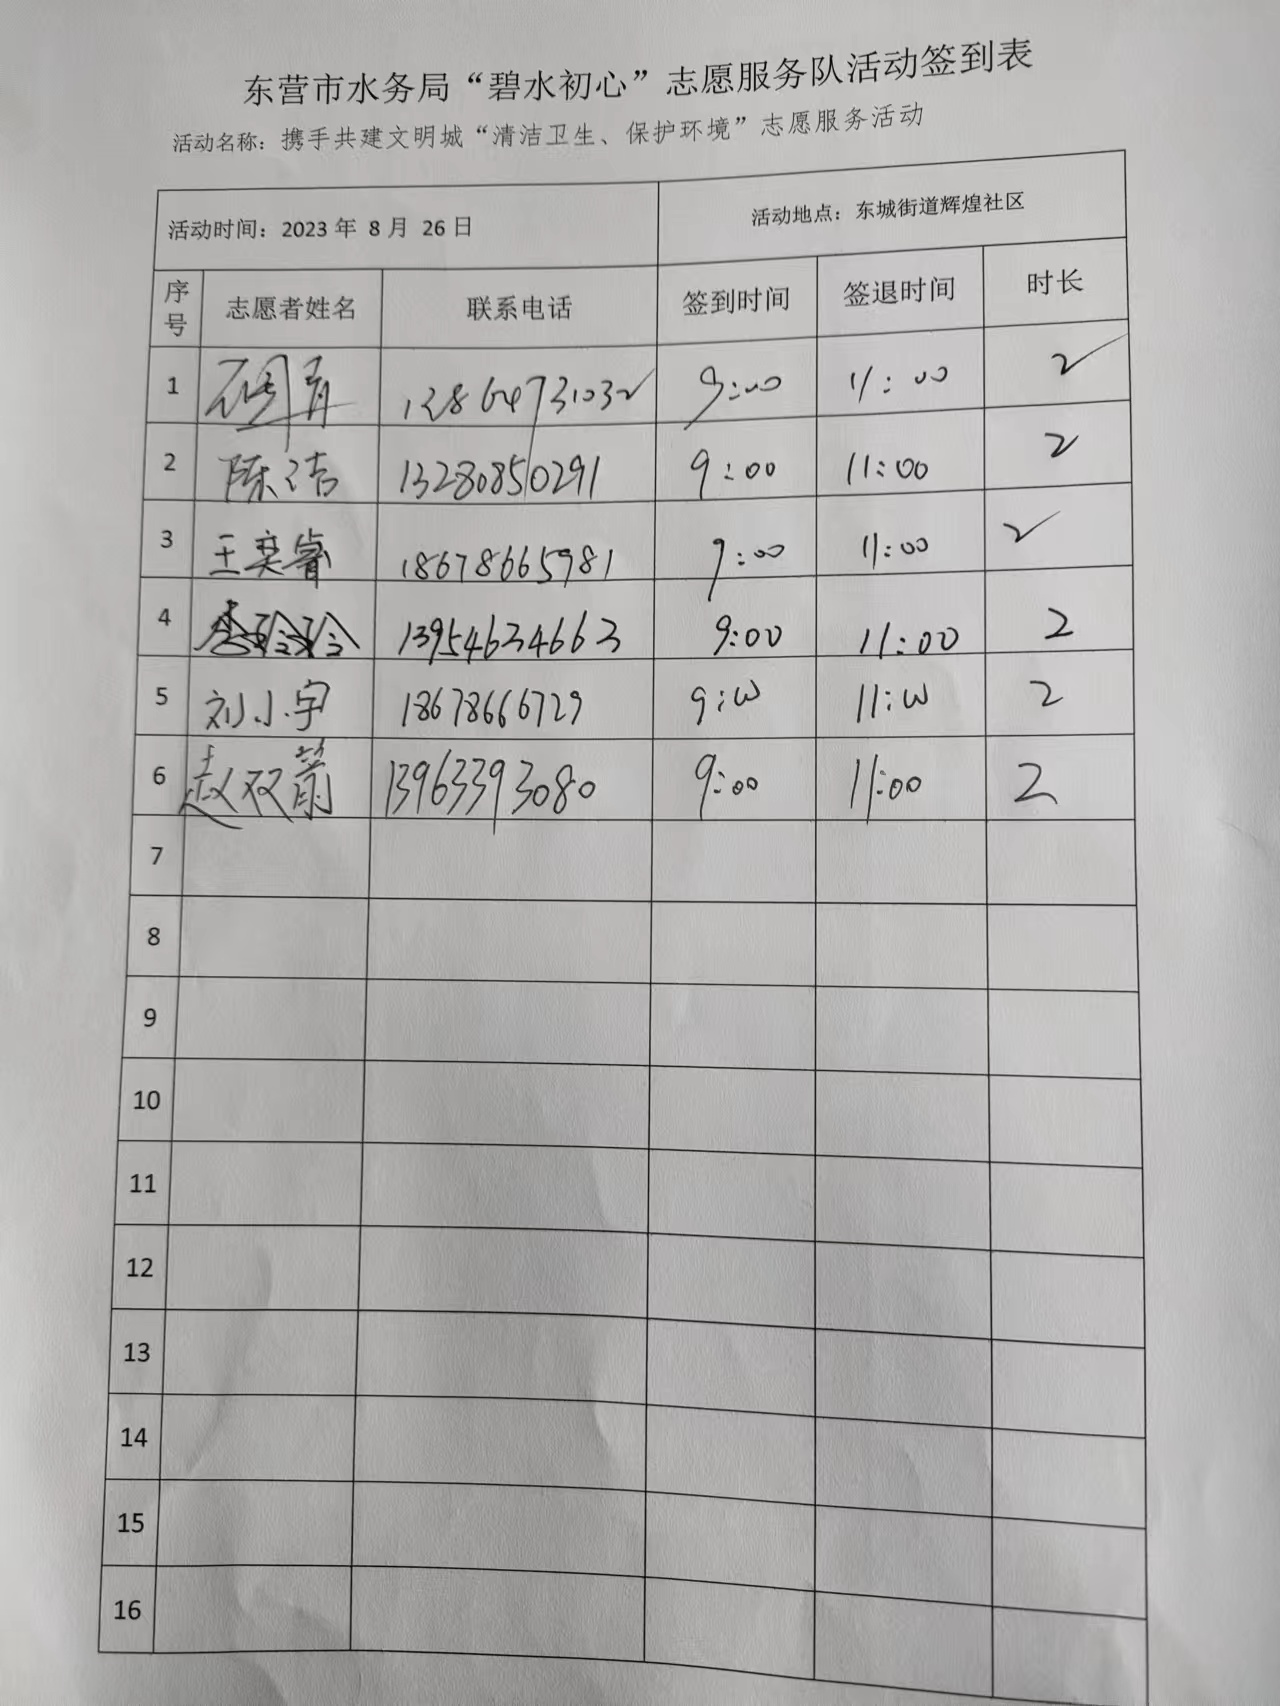 东营市水务局“碧水初心”志愿服务队活动签到表
活动名称：携手共建文明城“清洁卫生、保护环境”志愿服务活动
活动时间：2023 年 8 月 26 日 活动地点：东城街道辉煌社区
序号 志愿者姓名 联系电话 签到时间 签退时间 时长
1 9:00 11:00 2
2 陈洁 13280850291 9:00 11:00 2
3 王奕睿 18678665981 9:00 11:00 2
4 李玲玲 13954634663 9:00 11:00 2
5 刘小宇 18678666729 9:00 11:00 2
6 赵双箭 13963393080 9:00 11:00 2
7
8
9
10
11
12
13
14
15
16